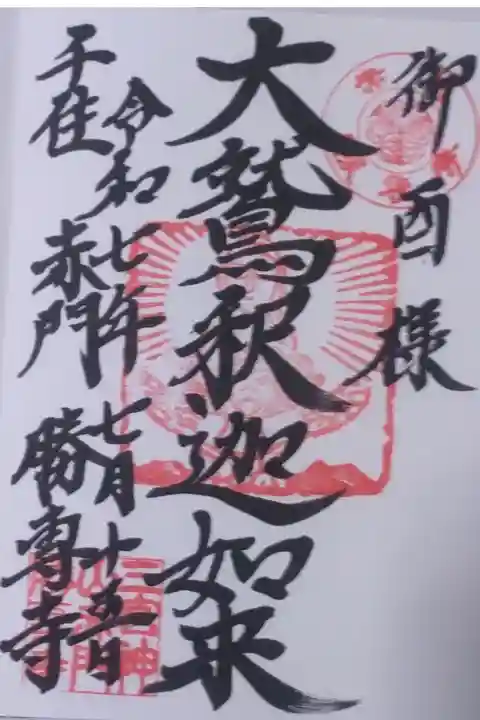 御酉様
大鷲釈迦如来
令和七年七月十五日
千住赤門勝専寺